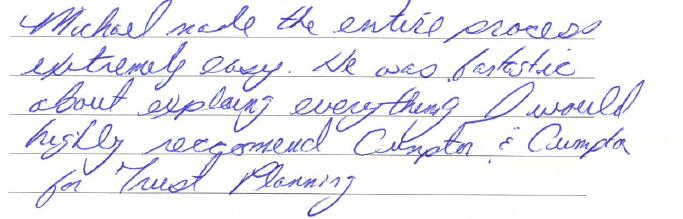 Michael made the entire process
extremely easy. He was fantastic
about explaing everything I would
highly reccomend & 
for Trust Planning